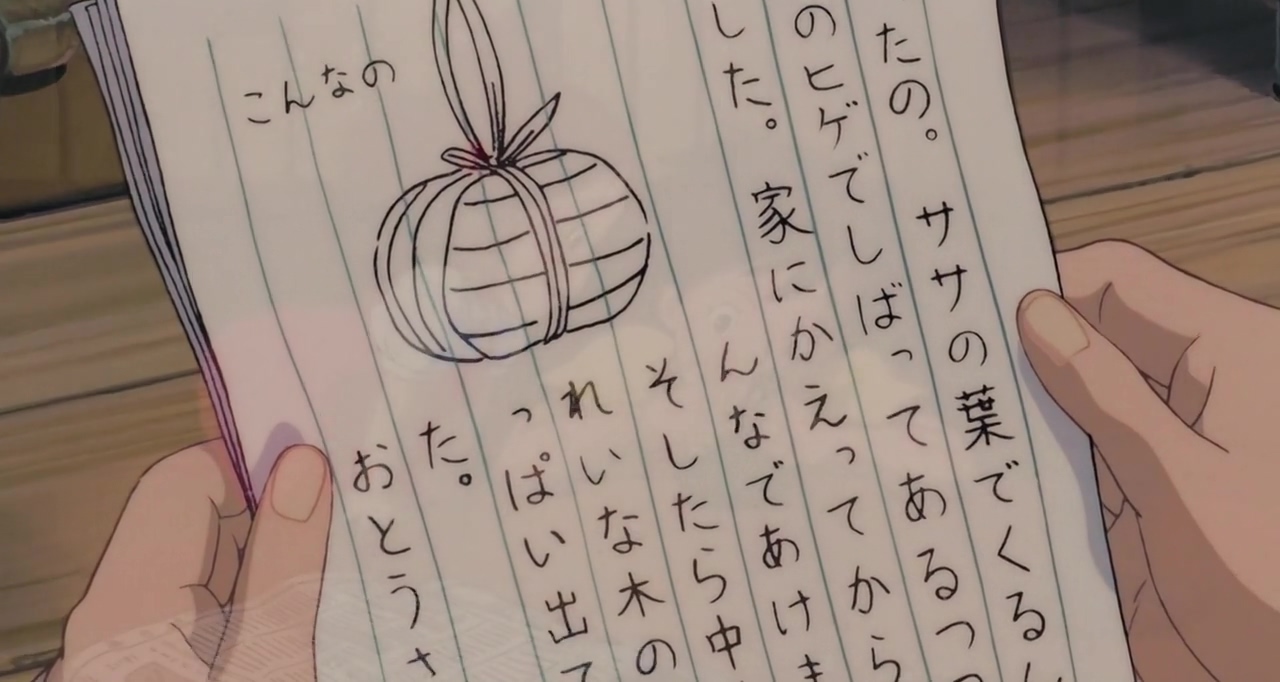 たの。ササの葉でくるん
のヒゲでしばってあるつつ
した。家にかえってから
んなであけま
そしたら中
れいな木の
っぱい出て
た。
おとうさ
こんなの